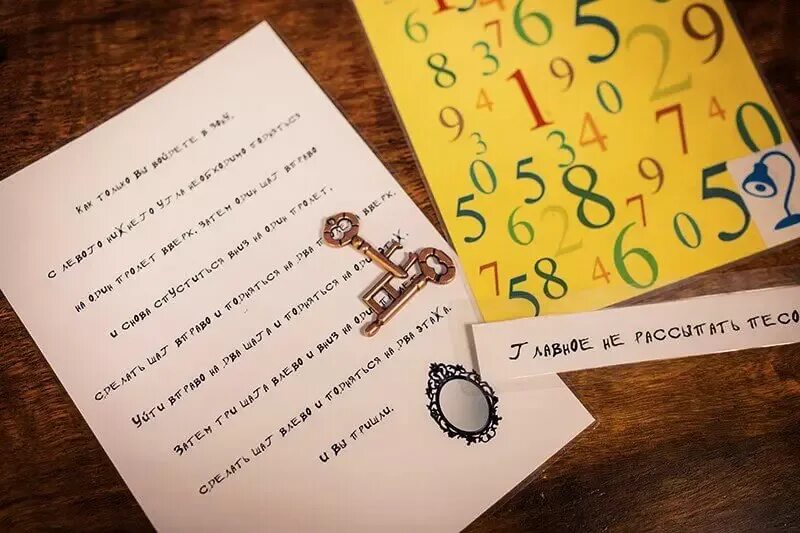 КАК ТОЛЬКО ВЫ ВОЙДЕТЕ В
С ЛЕВОГО НИЖНЕГО УГЛА НЕОБХОДИМО ПОДНЯТЬСЯ
НА ОДИН ПРОЛЕТ ВВЕРХ. ЗАТЕМ ОДИН ШАГ ВПРАВО
И СНОВА СПУСТИТЬСЯ ВНИЗ НА ОДИН ПРОЛЕТ,
СДЕЛАТЬ ШАГ ВПРАВО И ПОДНЯТЬСЯ НА ДВА ВВЕРХ.
УЙТИ ВПРАВО НА ДВА ШАГА И ПОДНЯТЬСЯ НА
ЗАТЕМ ТРИ ШАГА ВЛЕВО И ВНИЗ НА ОДИН
СДЕЛАТЬ ШАГ ВЛЕВО И ПОДНЯТЬСЯ НА ДВА ЭТАЖА.
И ВЫ ПРИШЛИ.
6 5 9
8 3 7 2
4 1 9 0
9 3 4 7 4 0
0 5 3 8 9 5 2
5 6 2 7 0
7 5 8 4 6
ГЛАВНОЕ НЕ РАССЫПАТЬ ПЕСО